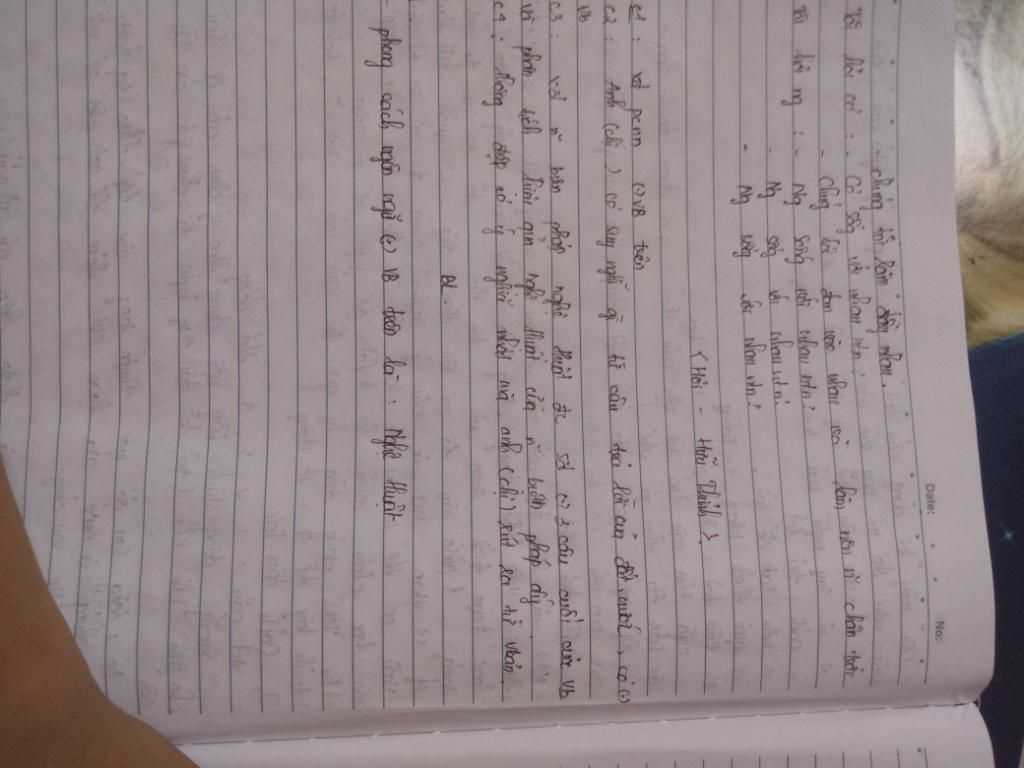 Date: No:
- chúng tôi làm đầy nhau.
Tôi hỏi cỏ : - Cỏ sống với nhau ntn?
- Chúng tôi đan vào nhau và làm nên n~ chân trời
Tôi hỏi ng : - Ng sống với nhau ntn?
- Ng sống với nhau ntn?
- Ng sống với nhau ntn?
< Hỏi - Hữu Thỉnh >
c1 : xđ pcnn (-) VB trên
c2 : Anh (chị) có suy nghĩ gì từ câu trả lời của đất, nước, cỏ (-)
VB
c3 : xđ n~ biện pháp nghệ thuật đc sd (-) 3 câu cuối của VB
và phân tích hiệu quả nghệ thuật của n~ biện pháp ấy.
c4 : thông điệp có ý nghĩa nhất mà anh (chị) rút ra từ vbản
BL
- phong cách ngôn ngữ (-) VB trên là : Nghệ thuật